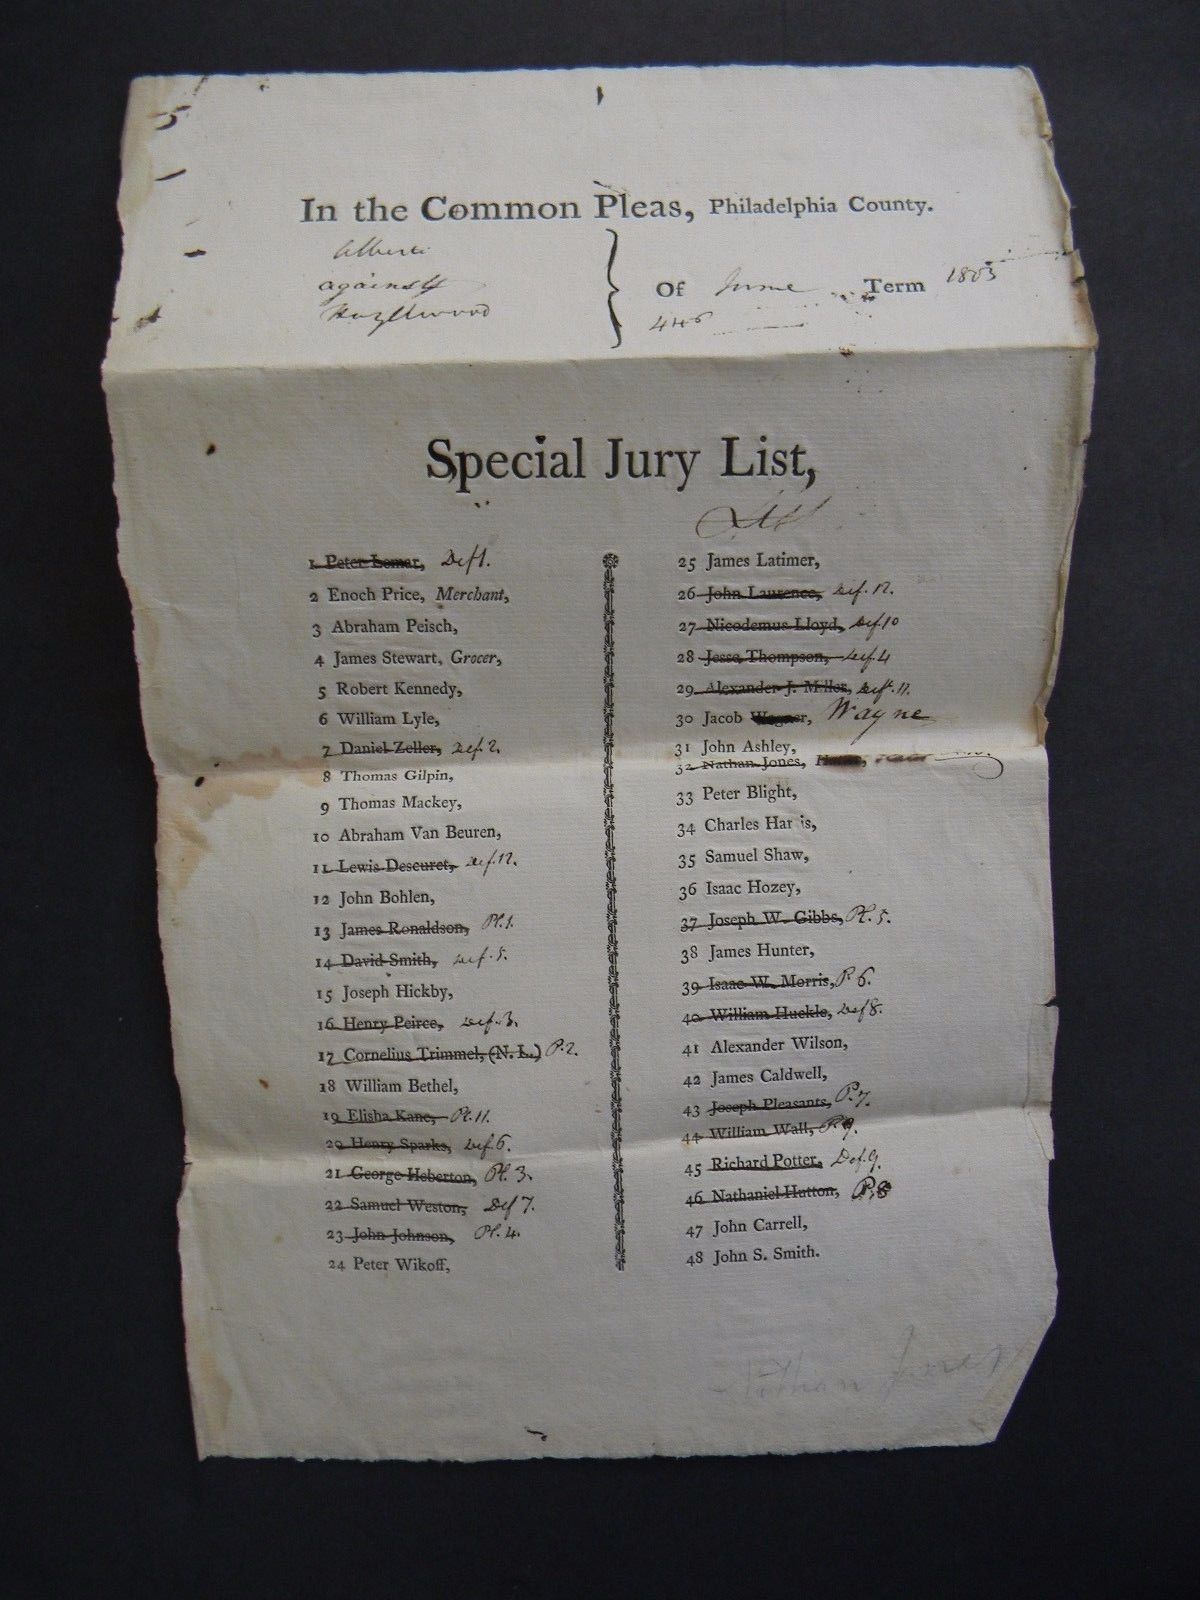 In the Common Pleas, Philadelphia County.
Alberti
against
Hazlewood
Of June Term 1803
446
Special Jury List,
1 Peter Lomar, Deft.
2 Enoch Price, Merchant,
3 Abraham Peisch,
4 James Stewart, Grocer,
5 Robert Kennedy,
6 William Lyle,
7 Daniel Zeller, Def. 2.
8 Thomas Gilpin,
9 Thomas Mackey,
10 Abraham Van Beuren,
11 Lewis Descuret, Def. 12.
12 John Bohlen,
13 James Ronaldson, Pl. 1.
14 David Smith, Def. 5.
15 Joseph Hickby,
16 Henry Peirce, Def. 3.
17 Cornelius Trimmel, (N. L.) P. 2.
18 William Bethel,
19 Elisha Kane, Pl. 11.
20 Henry Sparks, Def. 6.
21 George Heberton, Pl. 3.
22 Samuel Weston, Def 7.
23 John Johnson, Pl. 4.
24 Peter Wikoff,
25 James Latimer,
26 John Laurence, Def. 12.
27 Nicodemus Lloyd, Def. 10
28 Jesse Thompson, Def. 4
29 Alexander J. Miller, Deft. 11.
30 Jacob Wagner, Wayne
31 John Ashley,
32 Nathan Jones,
33 Peter Blight,
34 Charles Har is,
35 Samuel Shaw,
36 Isaac Hozey,
37 Joseph W. Gibbs, Pl. 5.
38 James Hunter,
39 Isaac W. Morris, P. 6.
40 William Huckle, Def 8.
41 Alexander Wilson,
42 James Caldwell,
43 Joseph Pleasants, P. 7.
44 William Wall, P. 9.
45 Richard Potter, Def. 9.
46 Nathaniel Hutton, P. 8
47 John Carrell,
48 John S. Smith.
Nathan Jones